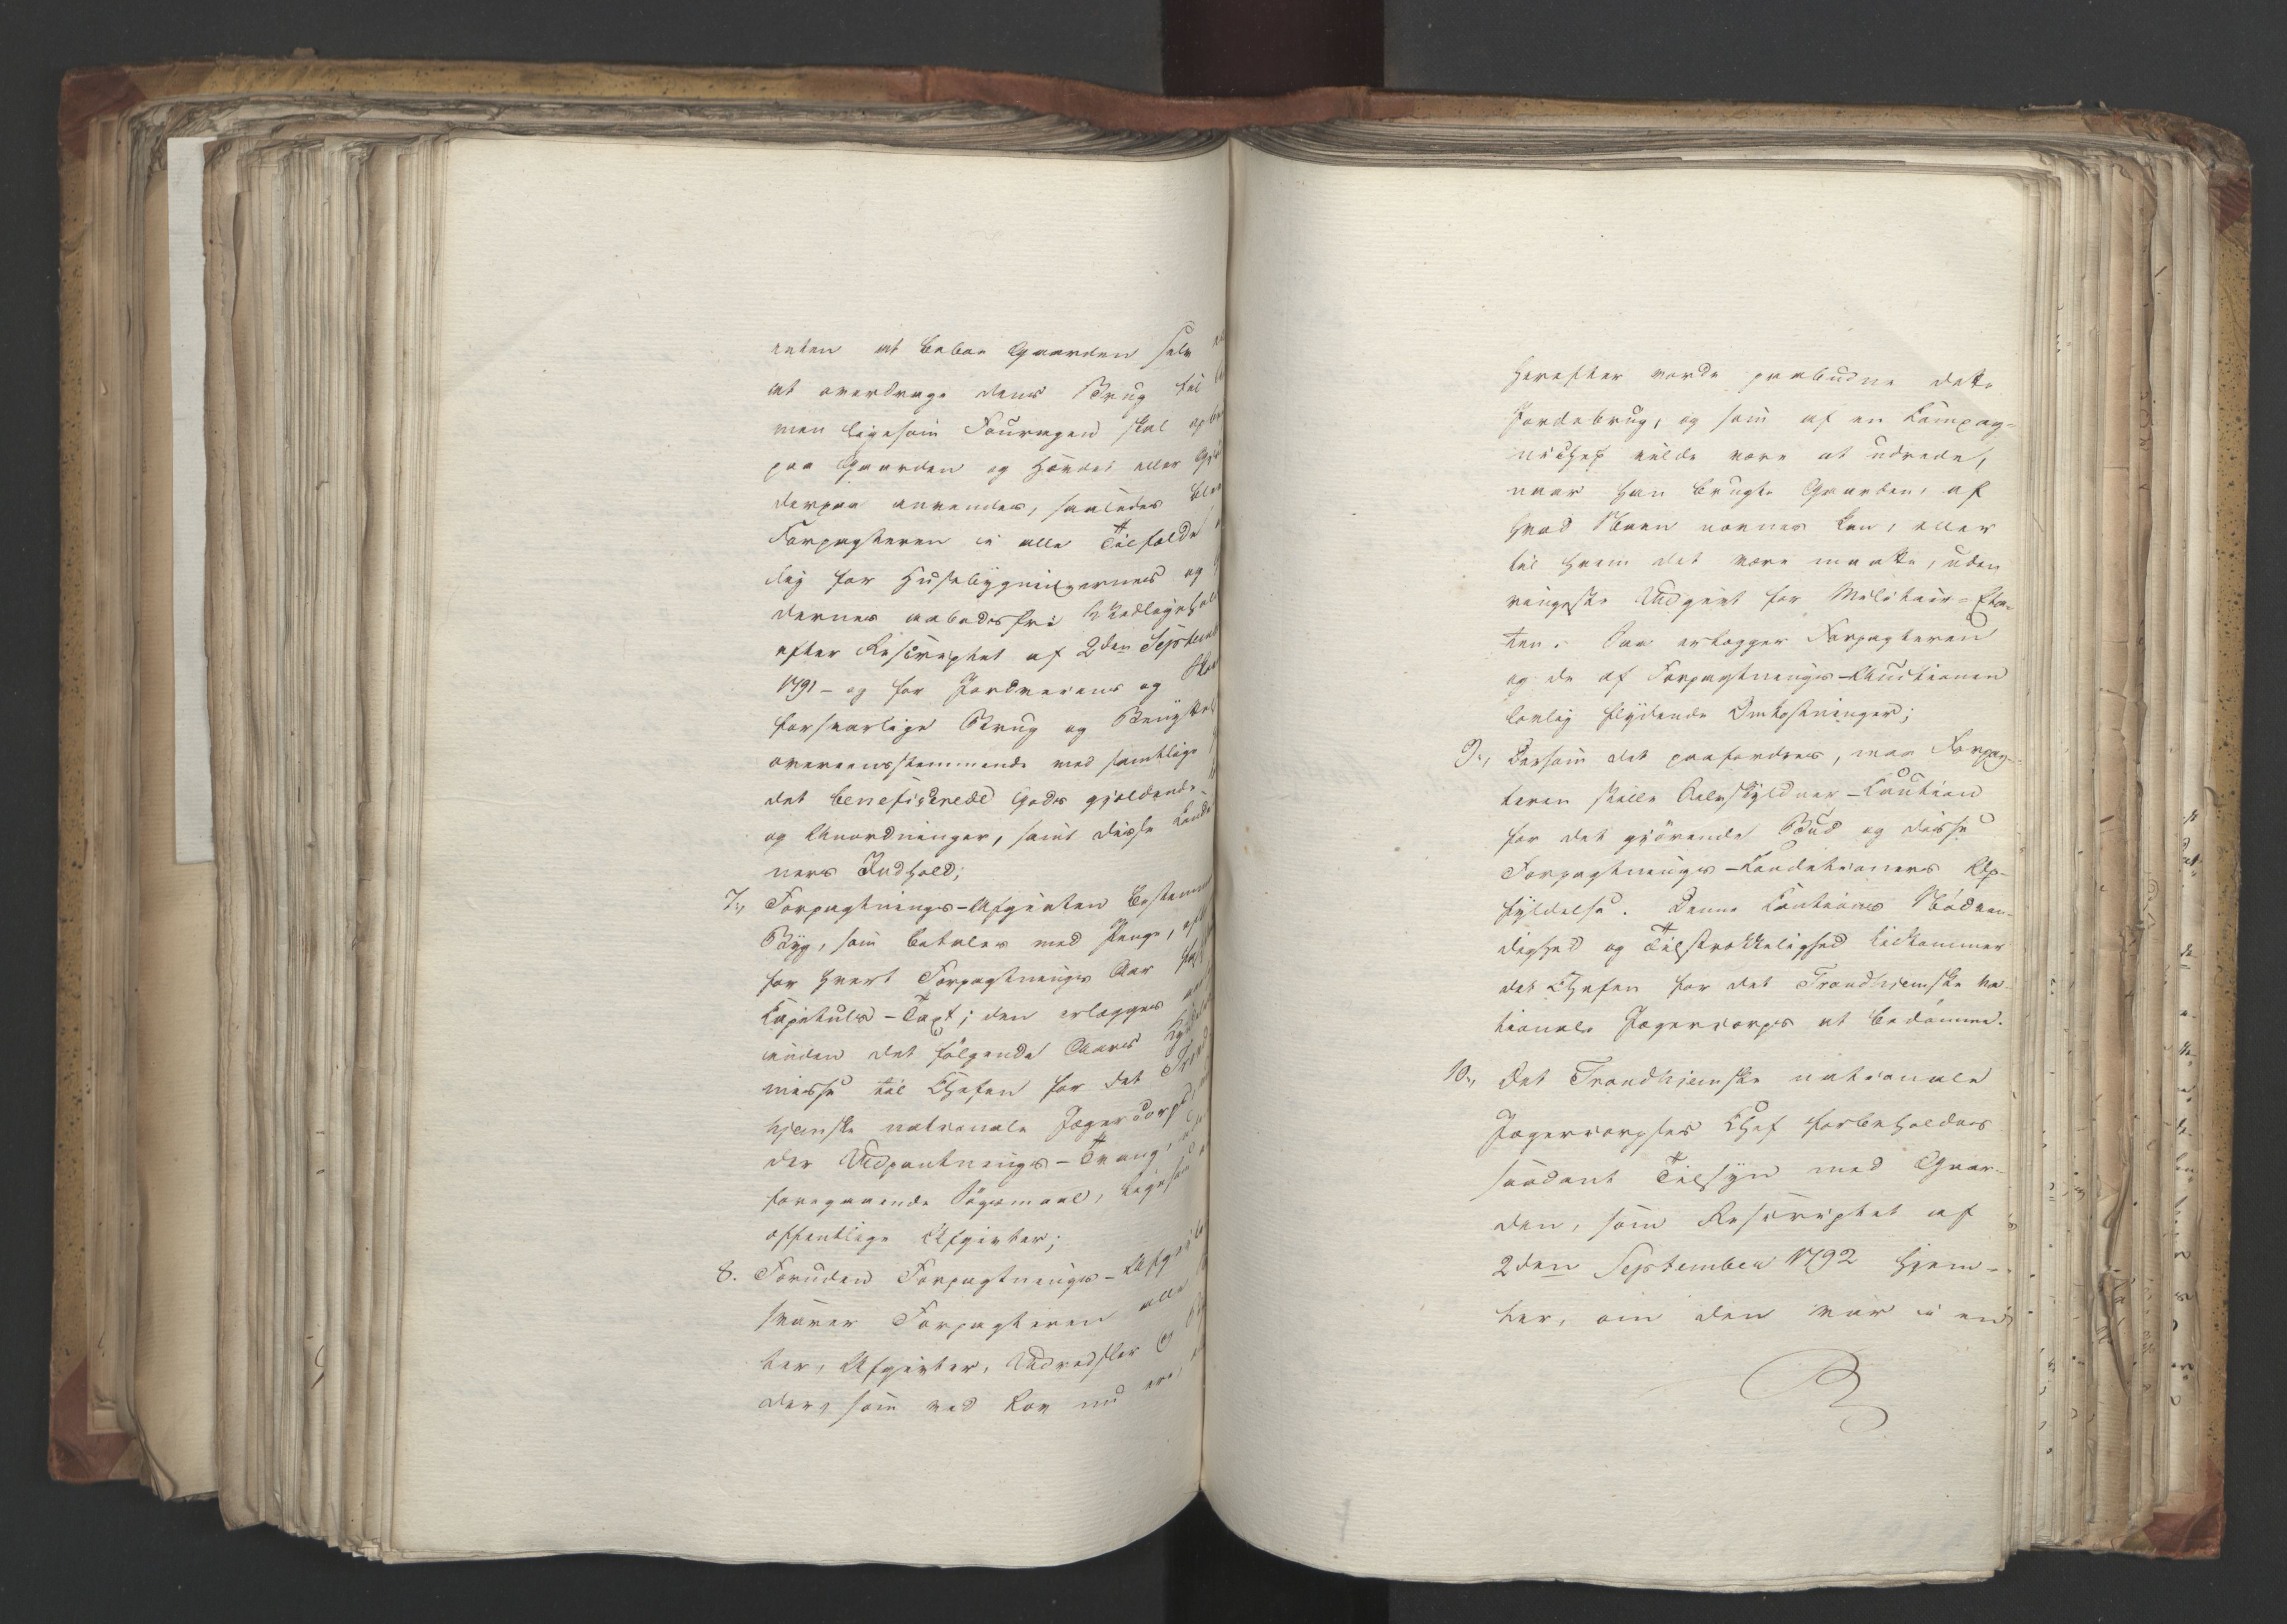 enten at beboe Gaarden selv
at overdrage dens Brug til
men ligesom Fouragen skal
paa Gaarden og Høndes eller
derpaa anvendes, saaledes
Forpagteren i alle Tilfælde
lig for Husebygningernes og
dernes aabodsfri Vedligehol
efter Rescriptet af 2den Septemb
1791 - og for Jordveiens og Skov
forsvarlige Brug og Benyttel
overeensstemmende med samtlige
det beneficerede Gods gjældende
og Anordninger, samt disse Condi
ners Indhold;
7., Forpagtnings-Afgivten bestemm
Byg, som betales med Penge, eft
for hvert Forpagtnings Aar
Capituls-Taxt; den erlægges
inden det følgende Aars
misse til Chefen for det Trond
hjemske nationale Jægercorps
der Udpantnings-Tvang,
foregaaende Søgsmaal, ligesom
offentlige Afgivter;
8. Foruden Forpagtnings-Afgivte
svarer Forpagteren alle
ter, Afgivter, Udredsler
der, som ved Lov nu ere,
herefter vorde paabudne dette
Jordebrug, og som af en Compag-
nichef vilde være at udrede,
naar han brugte Gaarden, af
hvad Navn nævnes kan, eller
til hvem det være maatte, uden
ringeste Udgivt for Militair-Eta-
ten. Saa erlægger Forpagteren
og de af Forpagtnings-Auctionen
lovlig flydende Omkostninger;
9., Dersom det paafordres, maa Forpag-
teren stille Selvskyldner-Caution
for det gjørende Bud og disse
Forpagtnings-Conditioners Op-
fyldelse. Denne Cautions Nødven-
dighed og Tilstrækkelighed tilkommer
det Chefen for det Trondhiemske na-
tionale Jægercorps at bedømme.
10., Det Trondhiemske nationale
Jægercorpses Chef forbeholdes
saadant Tilsyn med Gaar-
den, som Rescriptet af
2den September 1792 hjem-
ler, om den var i en